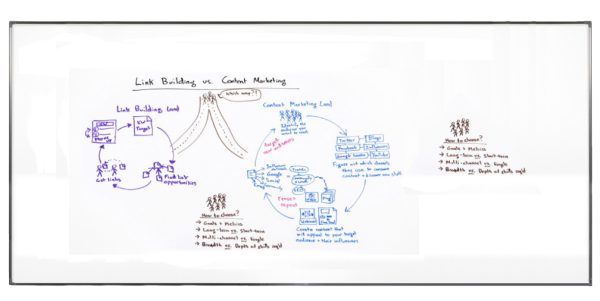 Link Building vs. Content Marketing
Which way?!
Link Building Land
KW
Target
Find link
opportunities
Get links
Content Marketing Land
Identify the
audience you
want to reach
Twitter
Blogs
Facebook
Influencers
YouTube
Figure out which channels
they use to consume
content + discover new stuff
Create content that
will appeal to your target
audience + their influencers
Influencer
Google
Social
Email
SEO
repeat
How to choose?
→ Goals + Metrics
→ Long-term vs. Short-term
→ Multi-channel vs. Single
→ Breadth vs. Depth of skills req'd
How to choose?
→ Goals + Metrics
→ Long-term vs. Short-term
→ Multi-channel vs. Single
→ Breadth vs. Depth of skills req'd